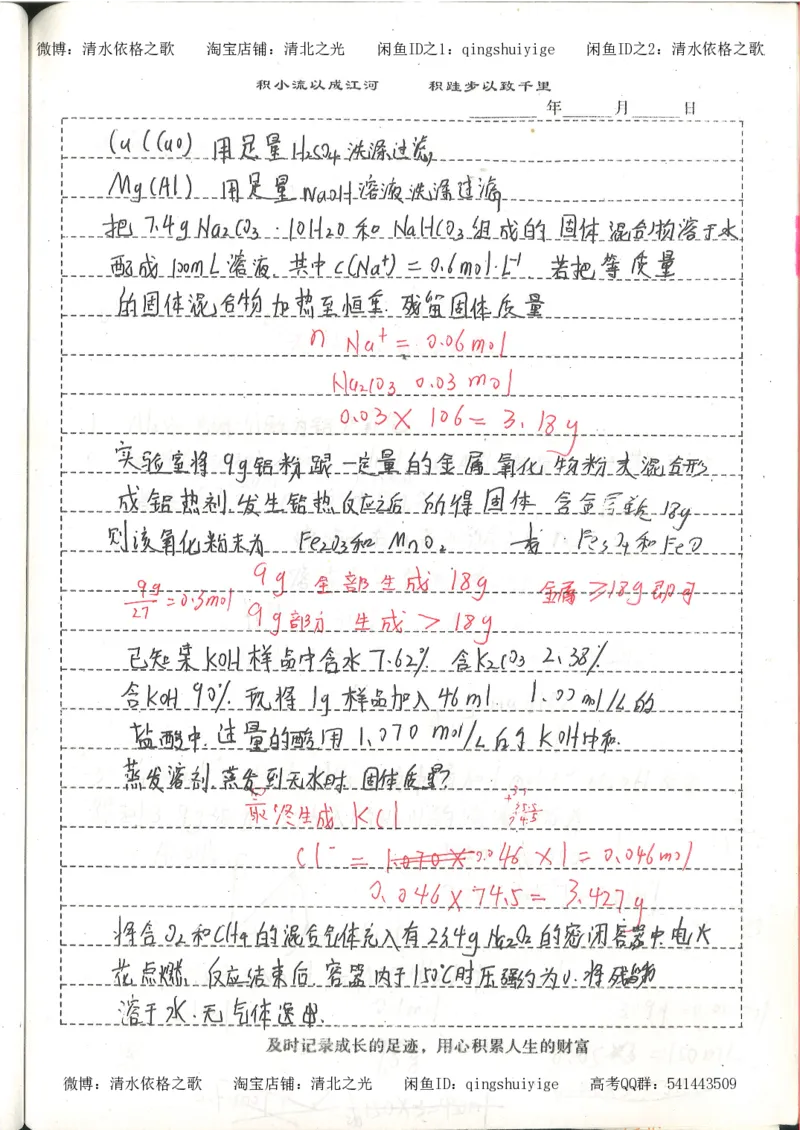 微博：清水依格之歌 淘宝店铺：清北之光 闲鱼ID之1：qingshuiyige 闲鱼ID之2：清水依格之歌
积小流以成江河 积跬步以致千里
年 月 日
Cu(CuO) 用足量H2SO4洗涤过滤,
Mg(Al) 用足量NaOH溶液洗涤过滤
把7.4g Na2CO3·10H2O和NaHCO3组成的固体混合物溶于水
配成100mL溶液,其中c(Na+)=0.6mol·L-1. 若把等质量
的固体混合物加热至恒重.残留固体质量
n Na+ = 0.06mol
Na2CO3 0.03 mol
0.03×106=3.18g
实验室将9g铝粉跟一定量的金属氧化物粉末混合形
成铝热剂.发生铝热反应之后 所得固体 含金属 18g
则该氧化粉末为 Fe2O3和MnO2 Fe3O4和FeO
9g 全部生成18g 金属≥18g即可
9g/27=0.3mol
9g部分 生成>18g
已知某KOH样品中含水7.62% 含K2CO3 2.38%
含KOH 90% 现将1g样品加入46ml 1.00mol/L的
盐酸中.过量的酸用1.070 mol/L的KOH中和.
蒸发溶剂.蒸发到无水时.固体质量?
最终生成KCl
39
+35.5
74.5
Cl- = 1.070× 0.046×1=0.046mol
0.046×74.5=3.427g
将含O2和CH4的混合气体充入有23.4g Na2O2的密闭容器中.电火
花点燃. 反应结束后.容器内于150℃时压强约为0.将残留物
溶于水.无气体逸出.
及时记录成长的足迹，用心积累人生的财富
微博：清水依格之歌 淘宝店铺：清北之光 闲鱼ID：qingshuiyige 高考QQ群：541443509